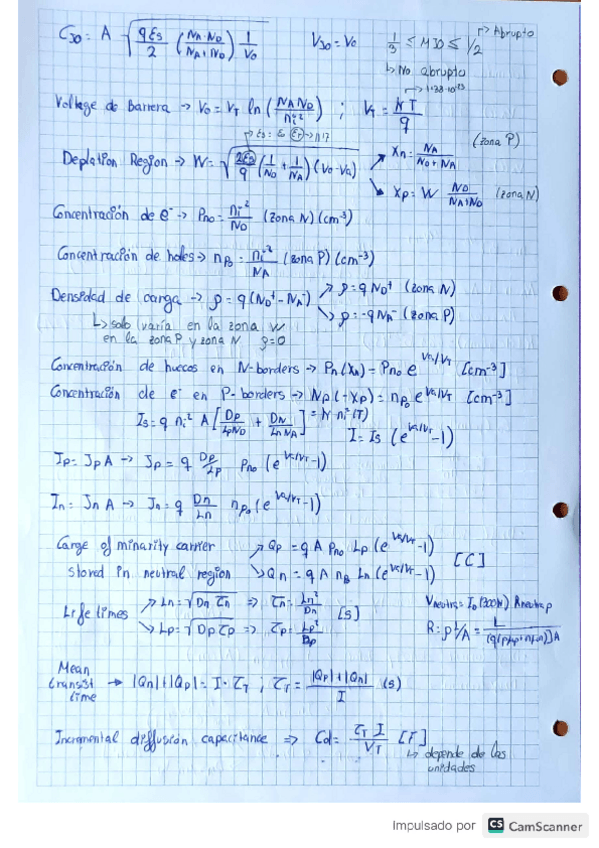 C_J0 = A √( qεs/2 (NA·ND / NA+ND) 1/V0 )   V_J0 = V0   1/3 ≤ MJ0 ≤ 1/2 → Abrupto
↳ No abrupto
Voltage de Barrera → V0 = VT ln (NA ND / ni²) ; VT = KT/q → 1'38·10⁻²³
→ εs = ε0 εr → 11'7
Depletion Region → W = √( 2εs/q (1/ND + 1/NA) (V0 - Va) ) ↗ Xn = NA / ND + NA (zona P)
↘ Xp = W ND / NA+ND (zona N)
Concentración de e⁻ → Pno = ni² / ND (zona N) (cm⁻³)
Concentración de holes → np0 = ni² / NA (zona P) (cm⁻³)
Densidad de carga → ρ = q (ND⁺ - NA⁻) ↗ ρ = q ND⁺ (zona N)
↘ ρ = -q NA⁻ (zona P)
↳ solo varía en la zona W
en la zona P y zona N ρ=0
Concentración de huecos en N-borders → Pn (Xn) = Pno e^(Va/VT) [cm⁻³]
Concentración de e⁻ en P-borders → Np (-Xp) = np0 e^(Va/VT) [cm⁻³]
Is = q ni² A [ Dp / Lp ND + Dn / Ln NA ] = K ni²(T)
I = Is (e^(Va/VT) - 1)
Ip = Jp A → Jp = q Dp/Lp Pno (e^(Va/VT) - 1)
In = Jn A → Jn = q Dn/Ln np0 (e^(Va/VT) - 1)
Carge of minarity carrier ↗ Qp = q A Pno Lp (e^(Va/VT) - 1) [C]
stored in neutral region ↘ Qn = q A np0 Ln (e^(Va/VT) - 1)
Life times ↗ Ln = √(Dn τn) ⇒ τn = Ln² / Dn [s]
↘ Lp = √(Dp τp) ⇒ τp = Lp² / Dp
Vneutra = I0 (300K) · Rneutra p
R = ρ L/A = L / (q(pμp + nμn)) A
Mean
transist → |Qn| + |Qp| = I · τT ; τT = |Qp| + |Qn| / I (s)
time
Incremental diffusión capacitance ⇒ Cd = τT I / VT [F]
↳ depende de las
unidades
Impulsado por CS CamScanner